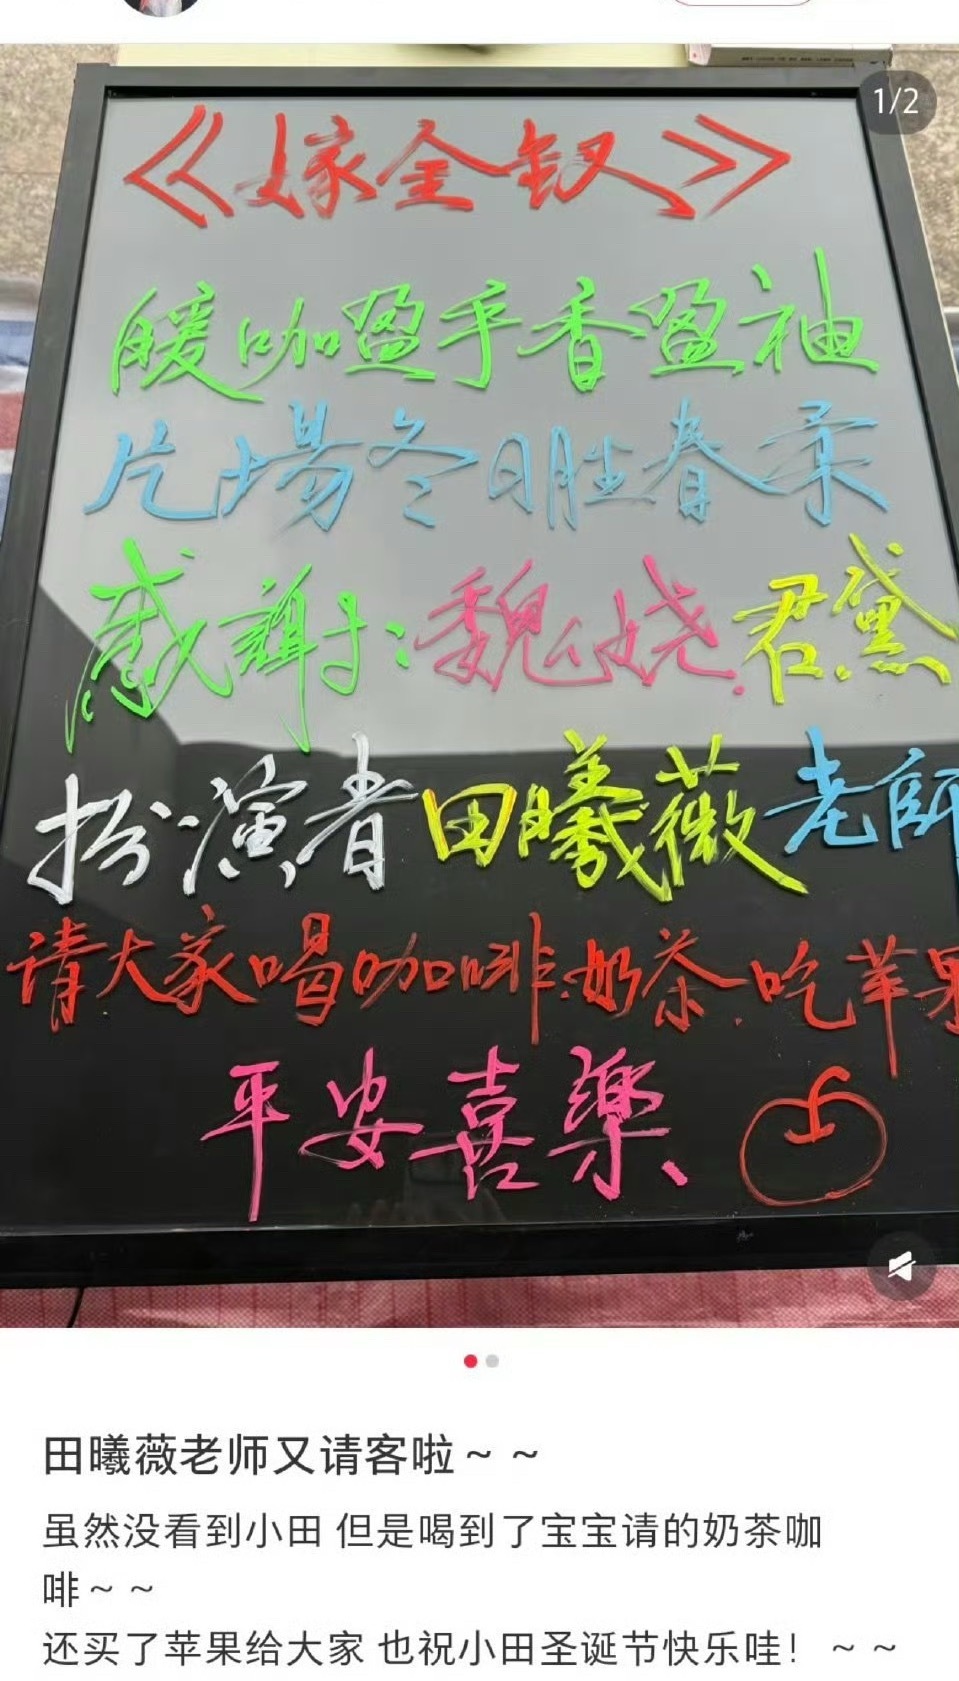 1/2
《嫁金钗》
暖咖盈手香盈袖
片場冬日勝春柔
感謝于:魏怃娆.君黛
扮演者田曦薇老師
请大家喝咖啡.奶茶.吃苹果
平安喜樂
田曦薇老师又请客啦~~
虽然没看到小田 但是喝到了宝宝请的奶茶咖
啡~~
还买了苹果给大家 也祝小田圣诞节快乐哇！~~